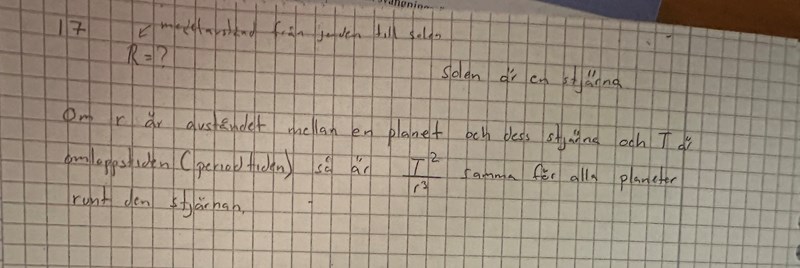 17 medelavstånd från jorden till solen
R = ?
Solen är en stjärna
Om r är avståndet mellan en planet och dess stjärna och T är
omloppstiden (periodtiden) så är T²/r³ samma för alla planeter
runt den stjärnan.